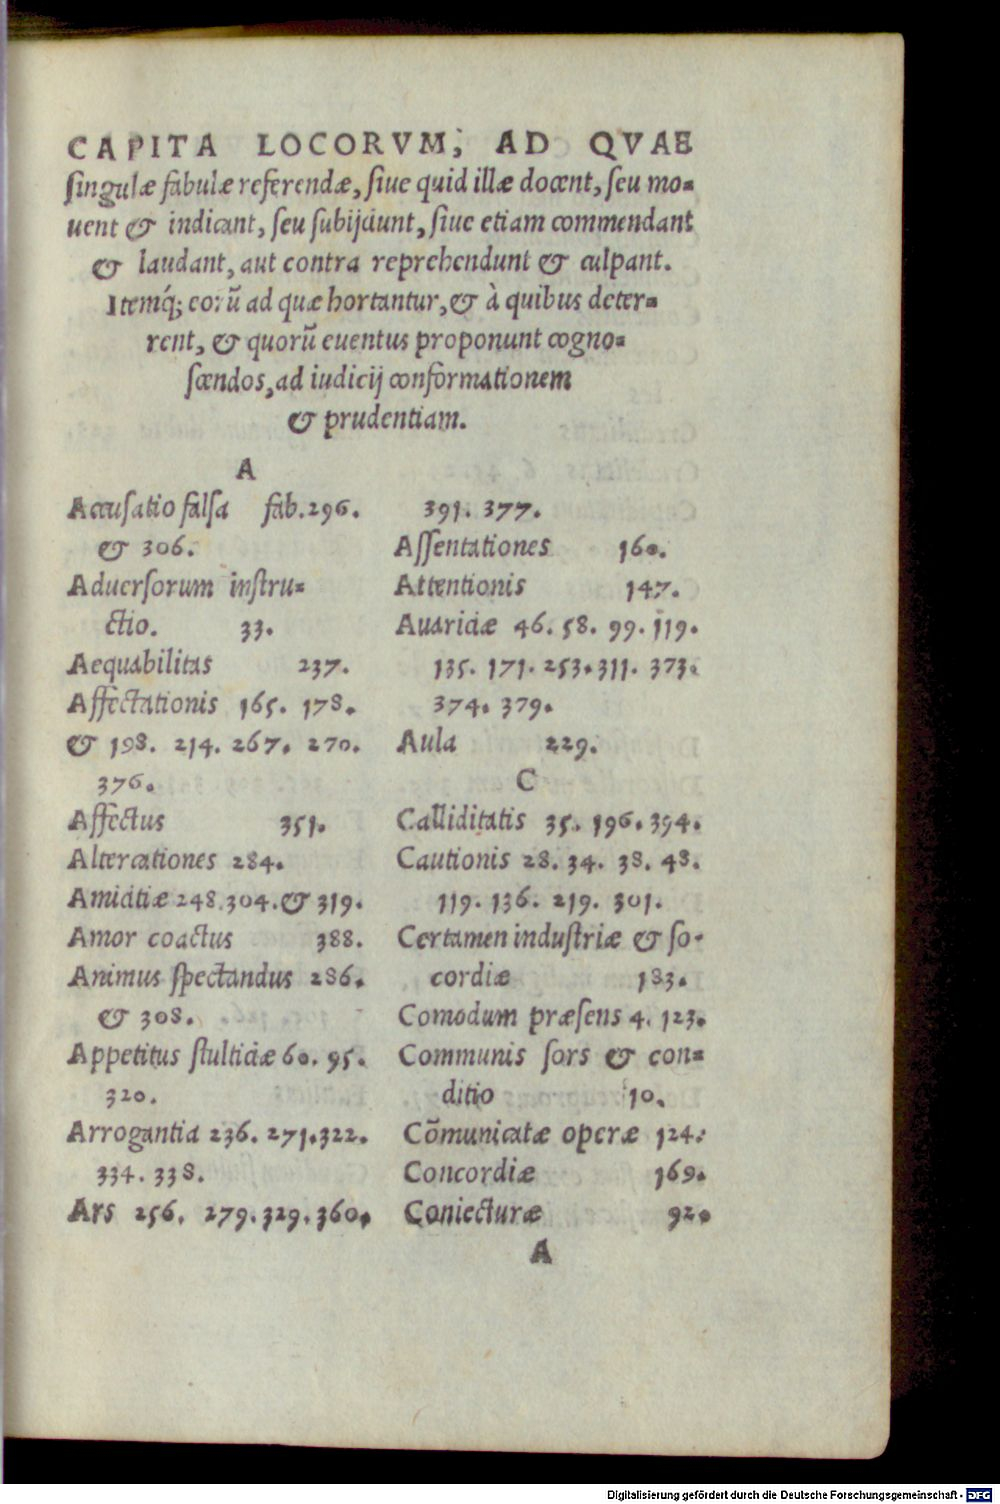 CAPITA LOCORVM, AD QVAE
singulæ fabulæ referendæ, siue quid illæ docent, seu mo=
uent & indicant, seu subijciunt, siue etiam commendant
& laudant, aut contra reprehendunt & culpant.
Itemq́; eorũ ad quæ hortantur, & à quibus deter=
rent, & quorũ euentus proponunt cogno=
scendos, ad iudicij conformationem
& prudentiam.
A
Accusatio falsa fab. 296.
& 306.
Aduersorum instru=
ctio. 33.
Aequabilitas 237.
Affectationis 165. 178.
& 198. 214. 267. 270.
376.
Affectus 351.
Altercationes 284.
Amicitiæ 248. 304. & 319.
Amor coactus 388.
Animus spectandus 286.
& 308.
Appetitus stulticiæ 60. 95.
320.
Arrogantia 236. 271. 322.
334. 338.
Ars 256. 279. 329. 360.
391. 377.
Assentationes 160.
Attentionis 147.
Auariciæ 46. 58. 99. 119.
135. 171. 253. 311. 373.
374. 379.
Aula 229.
C
Calliditatis 35. 196. 394.
Cautionis 28. 34. 38. 48.
119. 136. 219. 301.
Certamen industriæ & so-
cordiæ 183.
Comodum præsens 4. 123.
Communis sors & con=
ditio 10.
Cõmunicatæ operæ 124.
Concordiæ 169.
Coniecturæ 92.
A
Digitalisierung gefördert durch die Deutsche Forschungsgemeinschaft - DFG